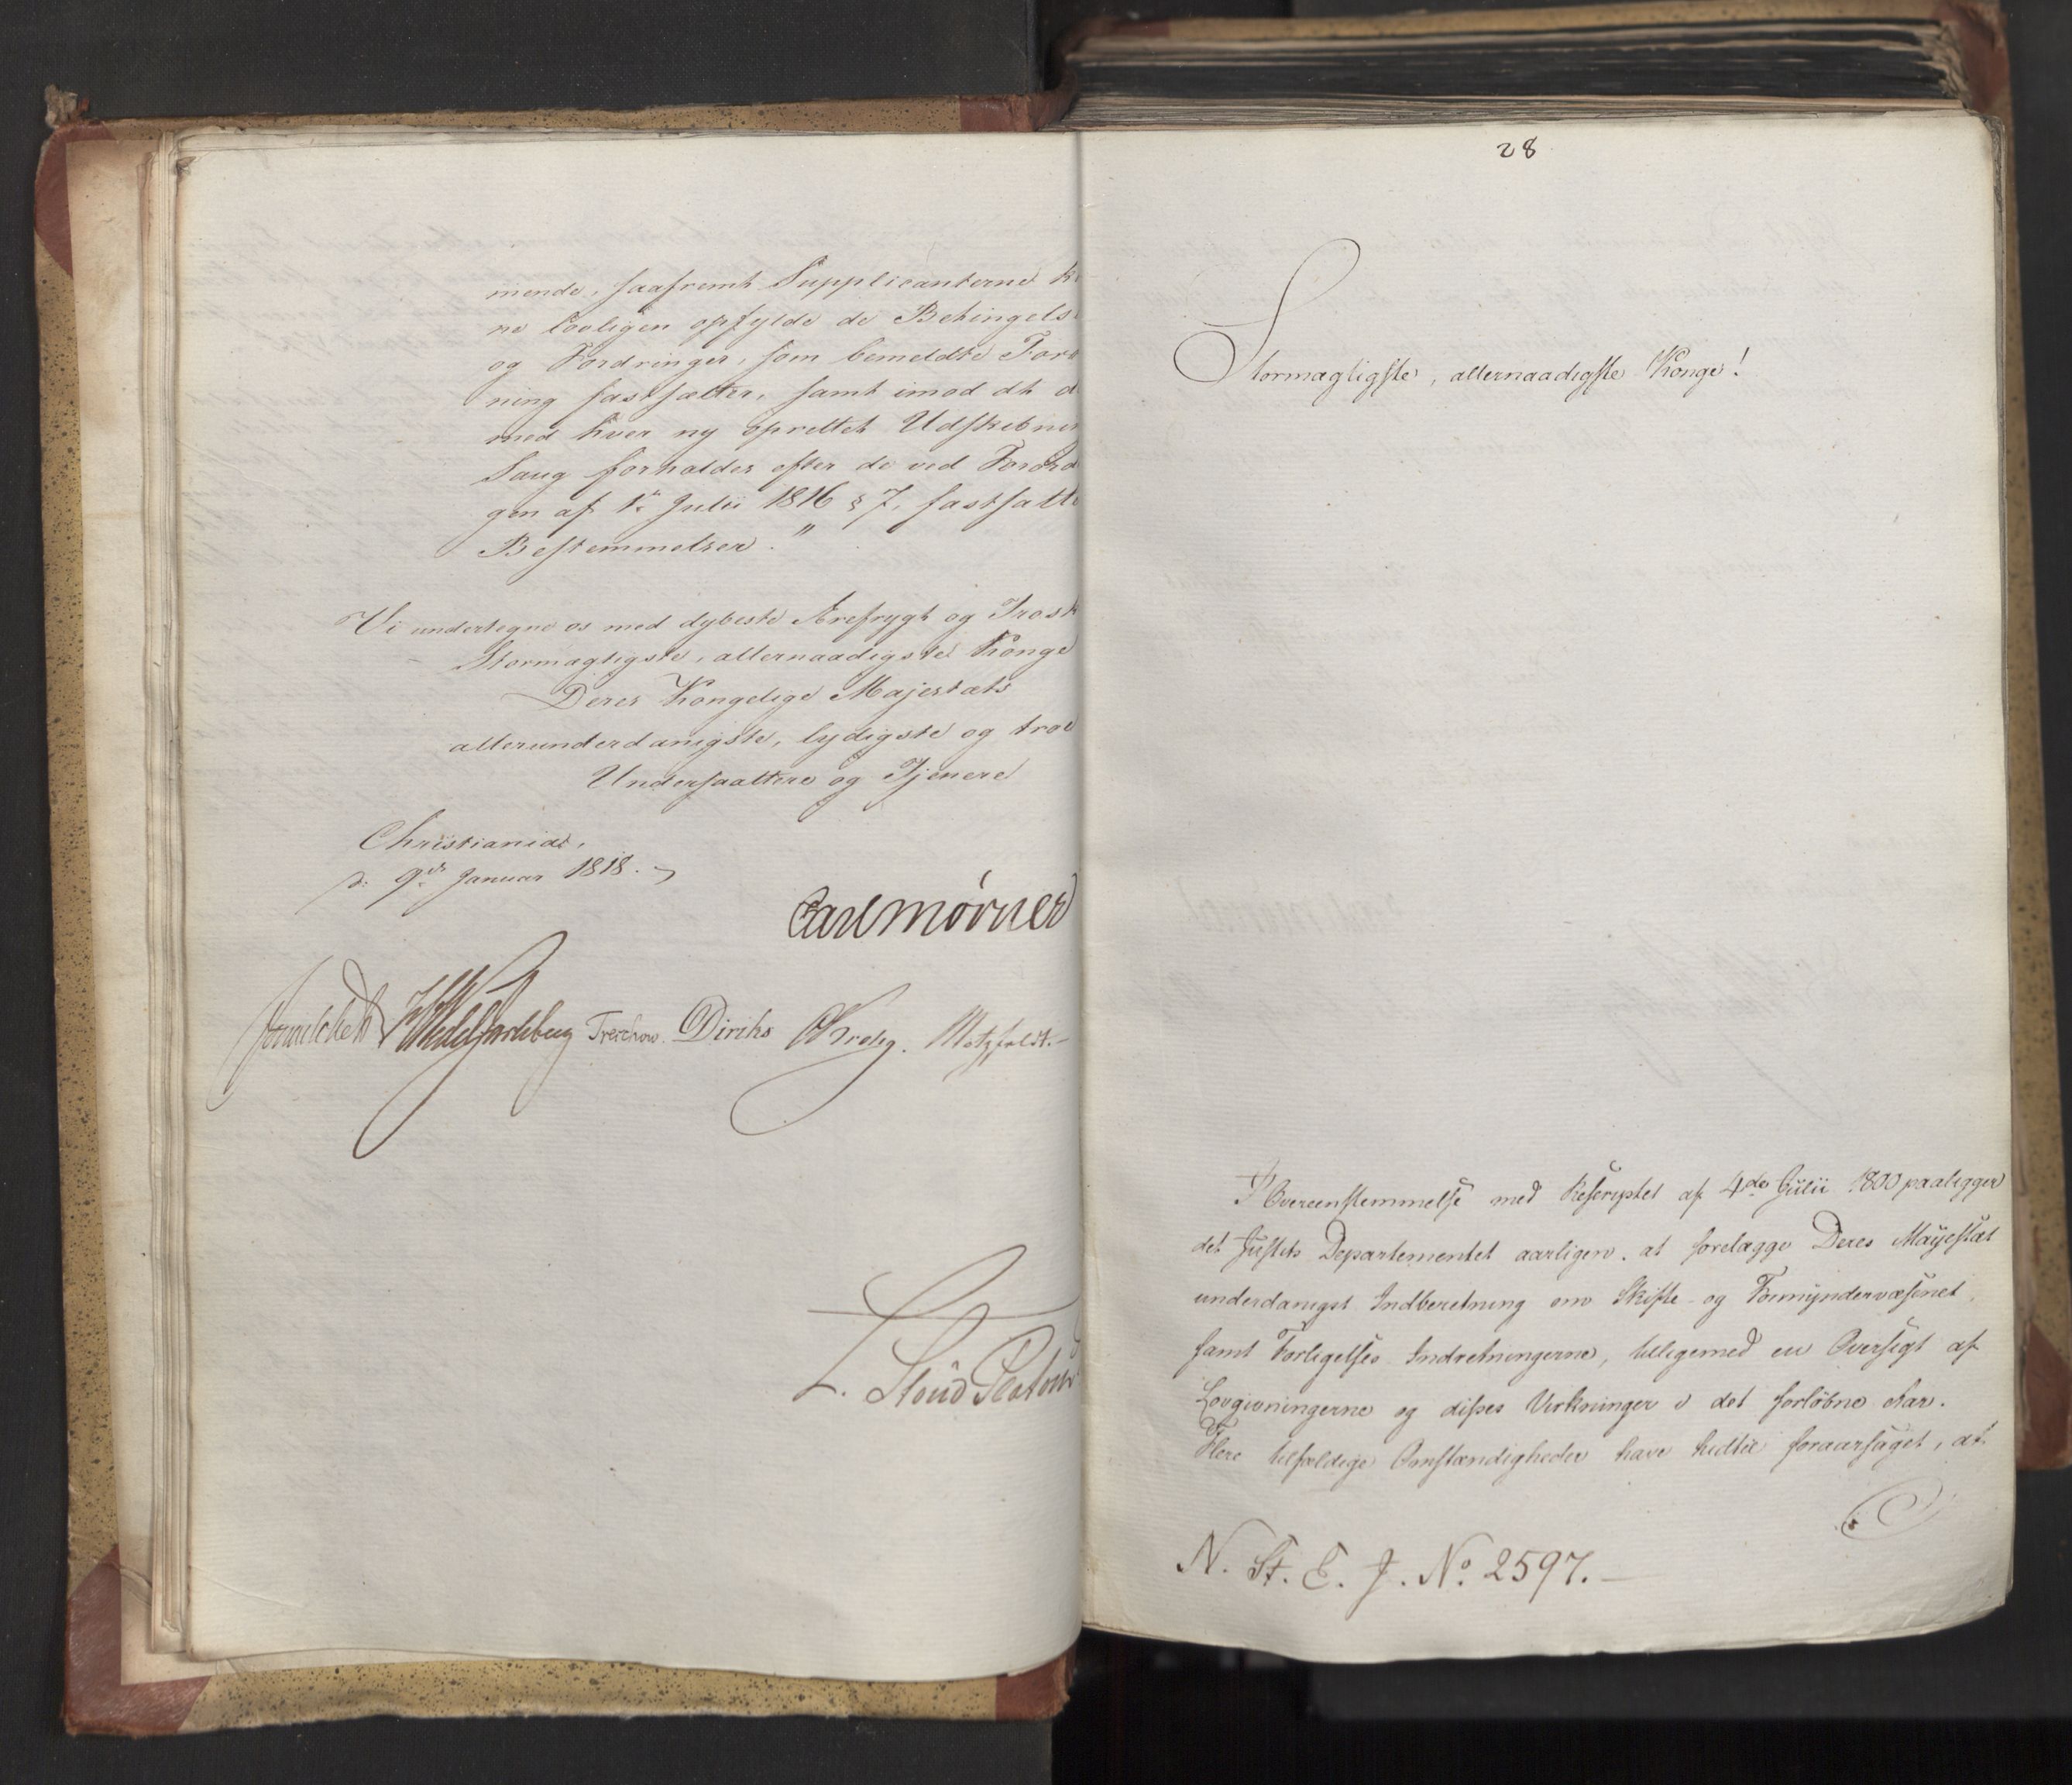 mende, saafremt Supplicanterne k
ne lovligen opfylde de Betingels
og Fordringer, som bemeldte Foro
ning fastsætter, samt imod at d
med hver ny oprettet Udskibnin
Saug forholdes efter de ved Forord
gen af 1ste Julii 1816 § 7, fastsatte
Bestemmelser."
Vi undertegne os med dybeste Ærefrygt og Trosk
Stormægtigste, allernaadigste Konge
Deres Kongelige Majestæts
allerunderdanigste, lydigste og troe
Undersaattere og Tjenere
Christiania,
d: 9de Januar 1818.
Carl Mørner
Sommerhielm HWedel Jarlsberg Treschow. Diriks Krohg. Motzfeldt.
L. Stoud Platou
28
Stormægtigste, allernaadigste Konge!
I Overeensstemmelse med Rescriptet af 4de Julii 1800 paaligger
det Justits Departementet aarligen, at forelægge Deres Majestæt
underdanigst Indberetning om Skifte- og Formyndervæsenet,
samt Forligelses Indretningerne, tilligemed en Oversigt af
Lovgivningerne og disses Virkninger i det forløbne Aar.
Flere tilfældige Omstændigheder have hidtil foraarsaget, at
N. St. E. J. No. 2597.